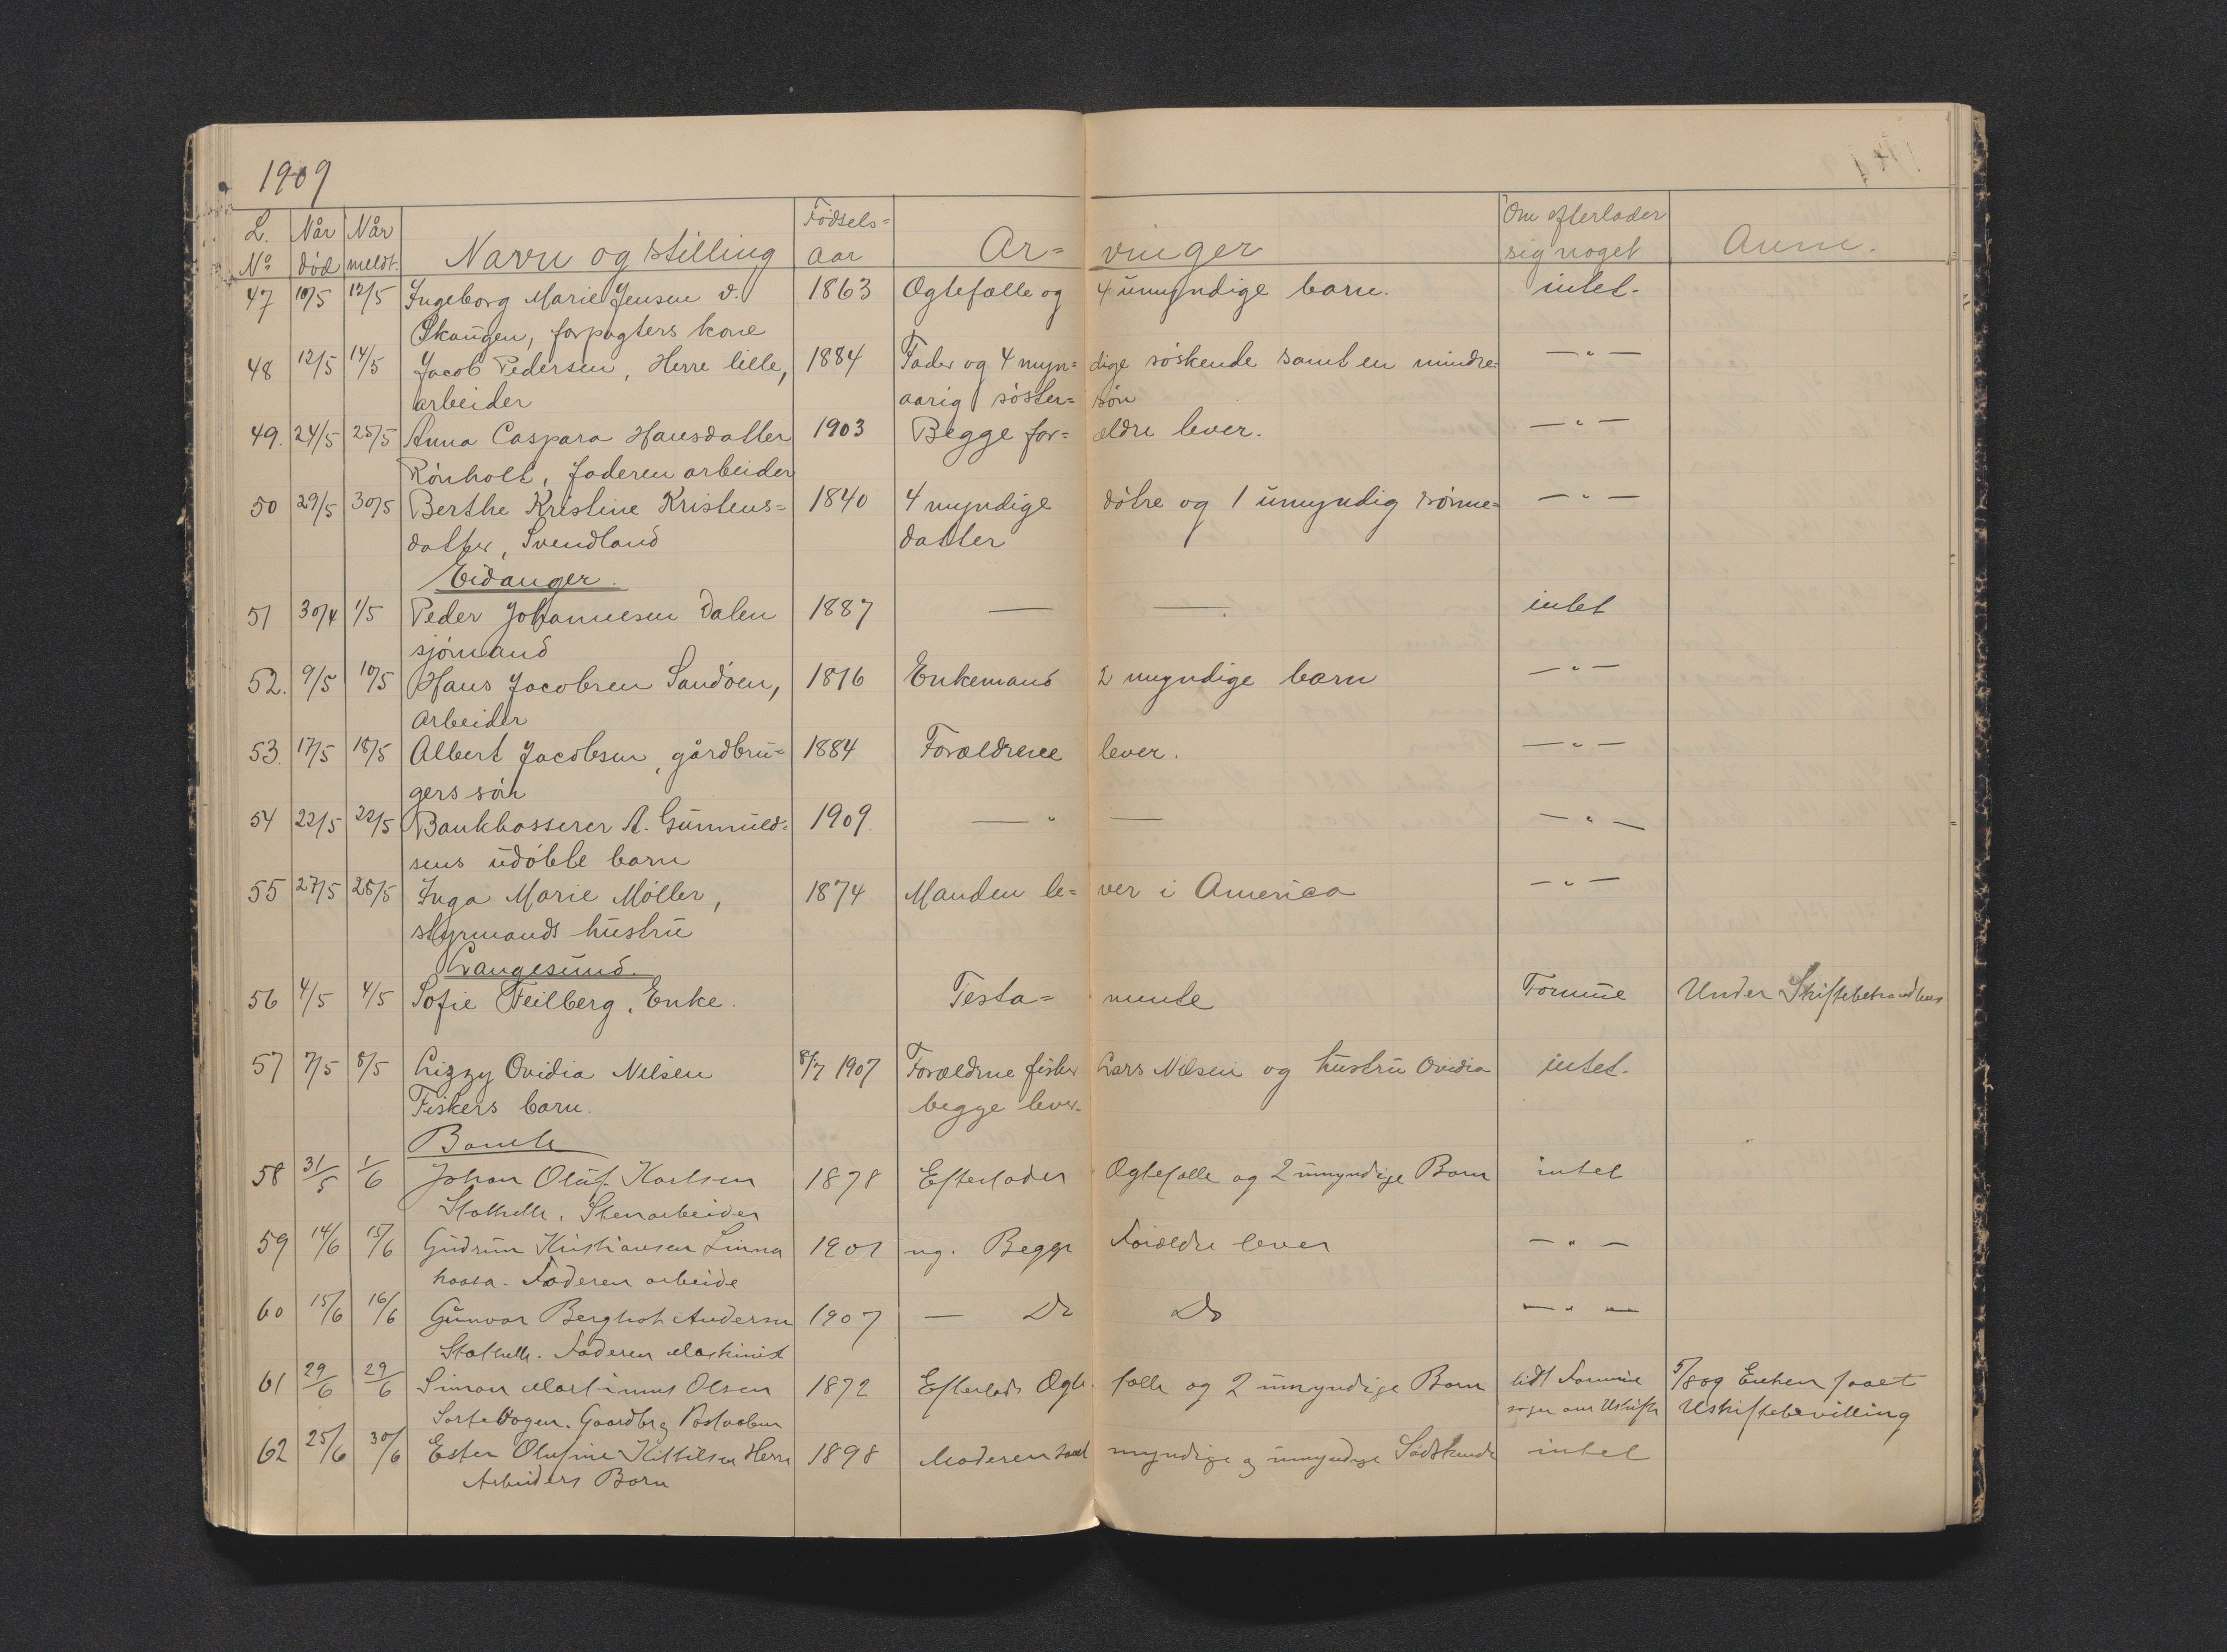 1909
L. No Når død Når meldt. Navn og stilling Fødsels-aar Ar- vinger Om efterlader sig noget Anm.
47 10/5 12/5 Ingeborg Marie Jensen v. 1863 Ogtefælle og 4 umyndige barn. intet.
Skaugen, forpagters kone
48 12/5 14/5 Jacob Pedersen, Herre lille, 1884 Fader og 4 myn= dige søskende samt en mindre= — " —
arbeider aarig søster= søn
49. 24/5 25/5 Anna Caspara Hansdatter 1903 Begge for= ældre lever. — " —
Rønholt, faderen arbeider
50 29/5 30/5 Berthe Kristine Kristens= 1840 4 myndige døtre og 1 umyndig sønne= — " —
datter, Svendland datter
Eidanger.
51 30/4 1/5 Peder Johannesen Dalen 1887 — — intet
sjømand
52. 9/5 10/5 Hans Jacobsen Sandøen, 1816 Enkemand 2 myndige barn — " —
arbeider
53. 17/5 18/5 Albert Jacobsen, gårdbru= 1884 Forældrene lever. — " —
gers søn
54 22/5 22/5 Bankkasserer A. Gunnuld= 1909. — " — — " —
sens udøbte barn
55 27/5 28/5 Inga Marie Møller, 1874 Manden le= ver i America — " —
styrmands hustru
Langesund.
56 4/5 4/5 Sofie Feilberg, Enke. Testa= mente Formue Under Skiftebehandling
57 7/5 8/5 Lizzy Ovidia Nilsen 8/7 1907 Forældrne fisker Lars Nilsen og hustru Ovidia intet.
Fiskers barn. begge lever.
Bamle
58 31/5 1/6 Johan Oluf Karlsen 1878 Efterlader Ogtefælle og 2 umyndige Børn intet
Stathelle. Stenarbeider
59 14/6 15/6 Gudrun Kristiansen Linna 1901 ug. Begge Forældre lever — " —
haasa. Faderen arbeide
60 15/6 16/6 Gunvor Berghot Andersen 1907 — Do Do — " —
Stathelle. Faderen Maskinist
61 29/6 29/6 Simon Martinus Olsen 1872 Efterlads Ogte fælle og 2 umyndige Børn lidt Formue 5/8 09 Enken faaet
Gaardbr og søger om Uskifte Uskiftebevilling
62 25/6 30/6 Ester Olufine Kittilsen Herre 1898 Moderen samt myndige og umyndige Sødskende intet
Arbeiders Barn